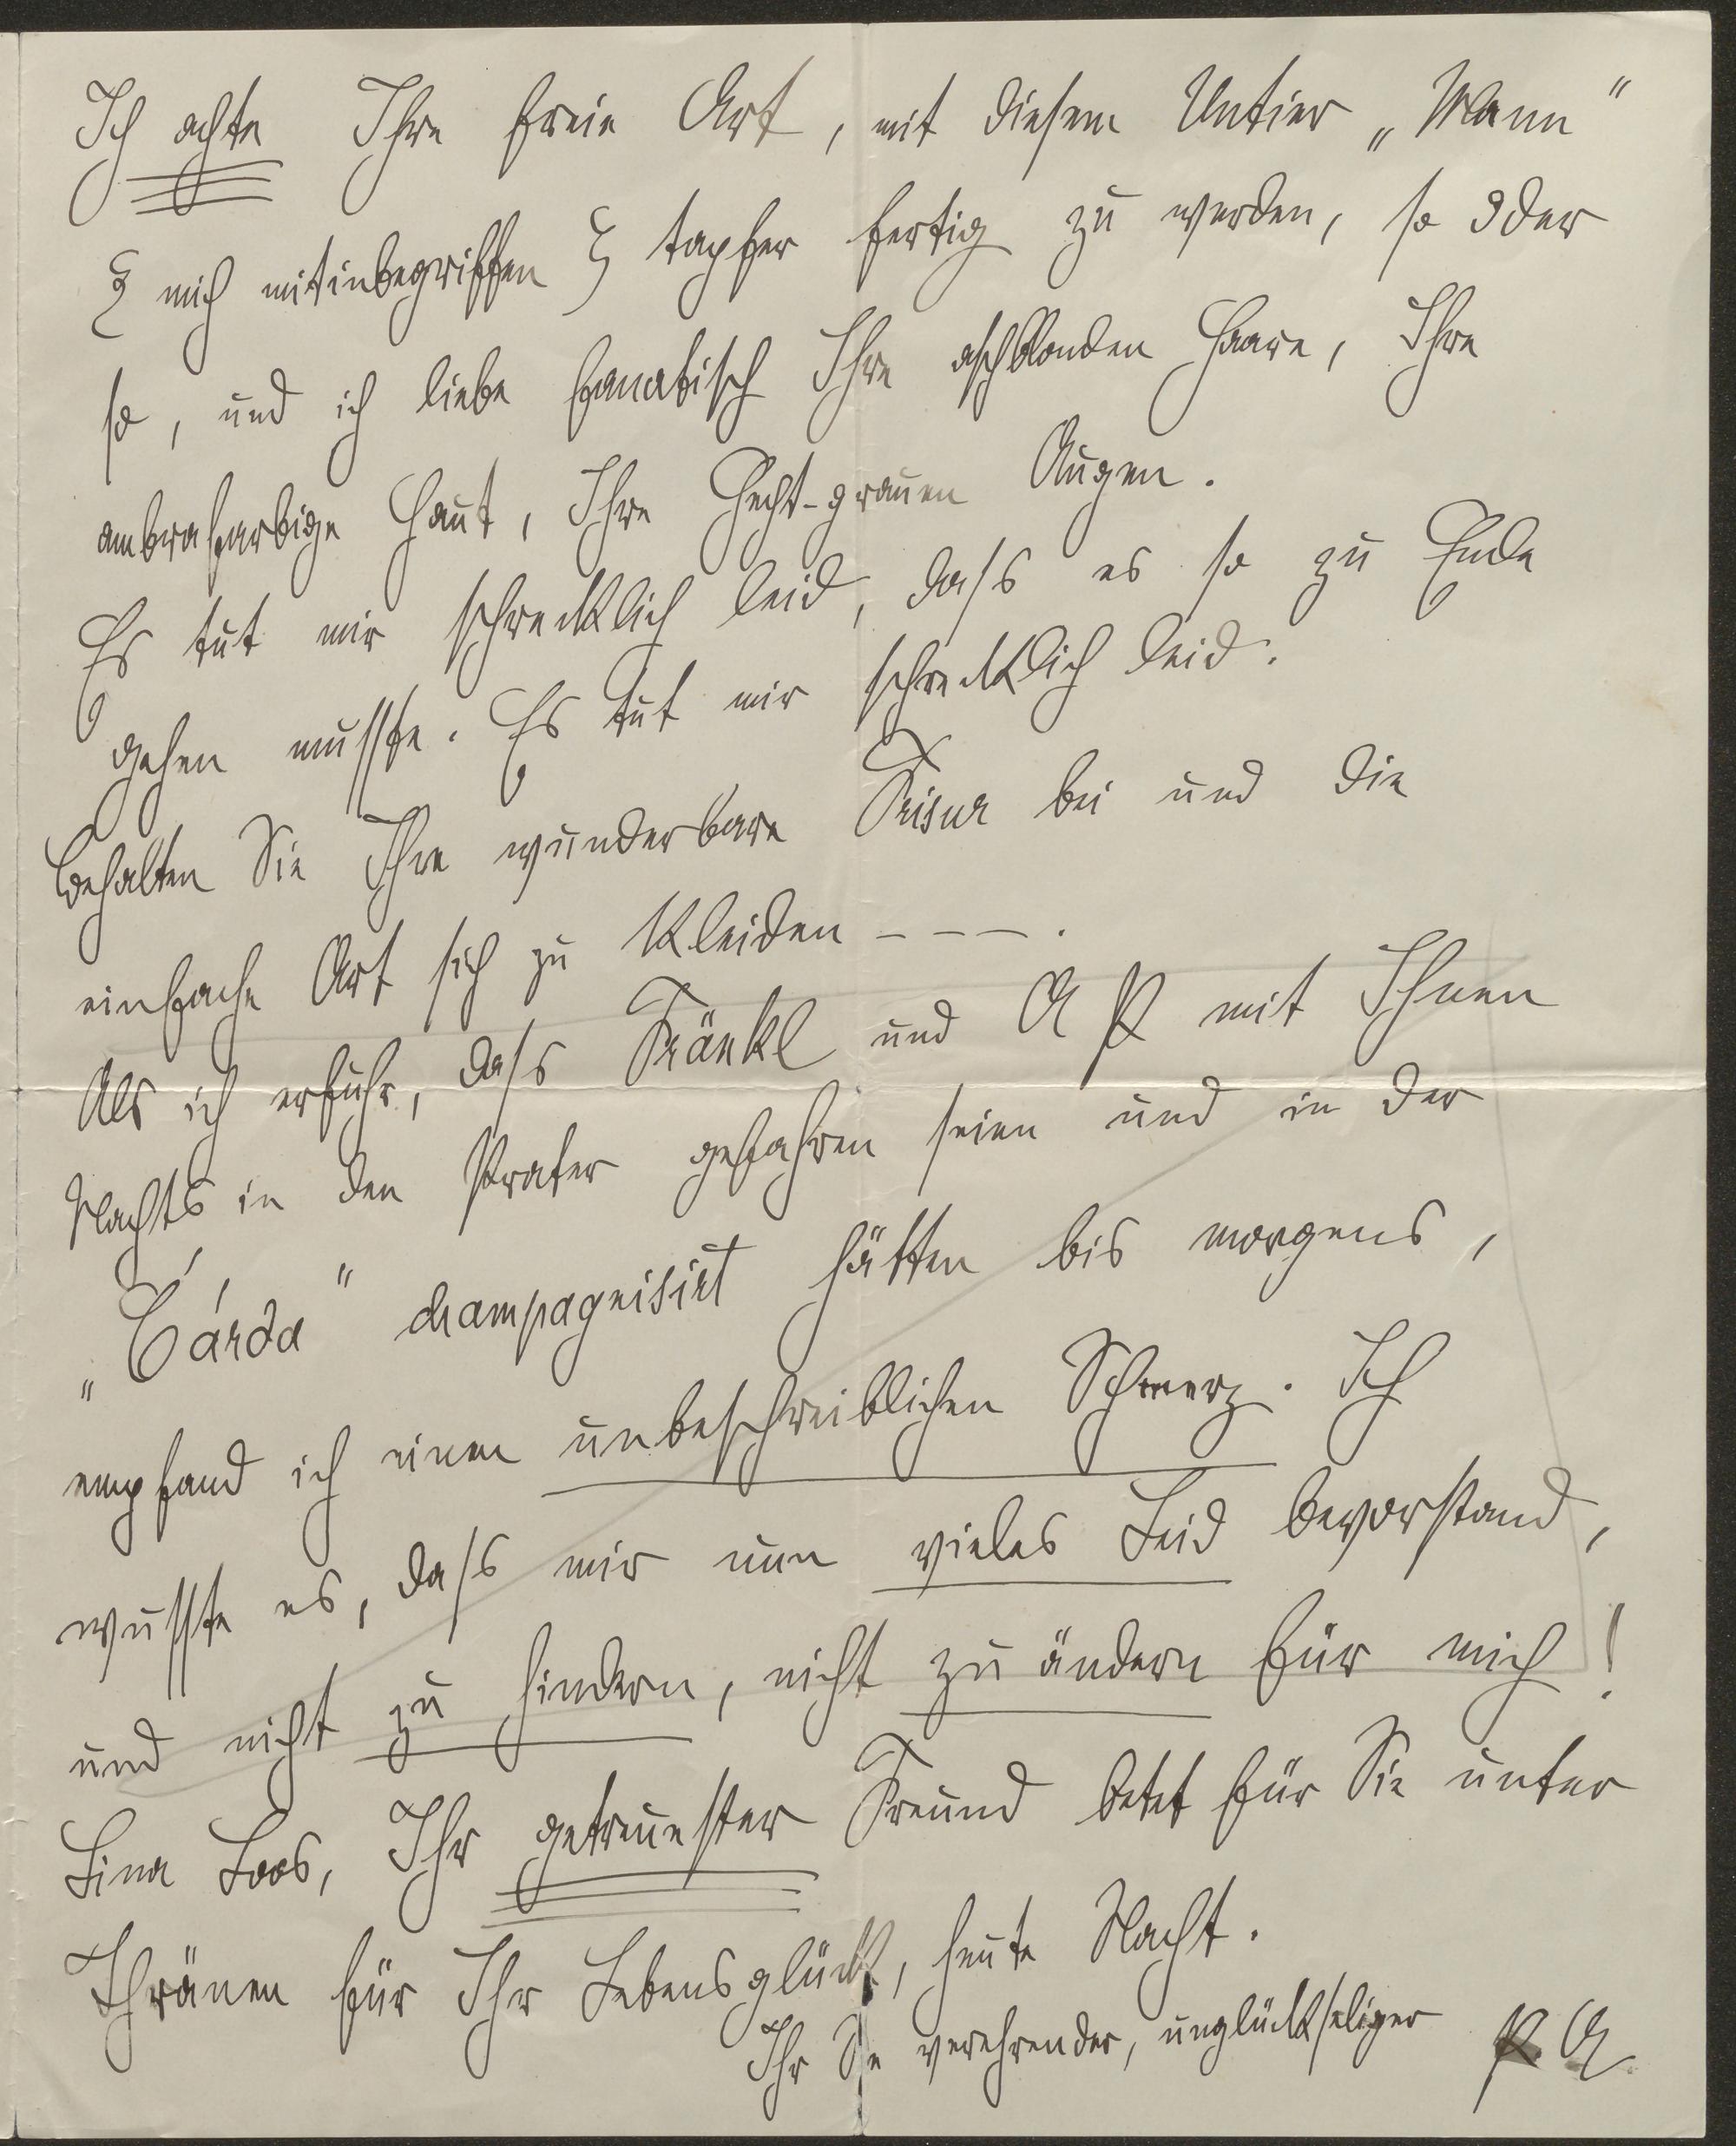 Ich achte Ihre freie Art, mit diesem Untier „Mann"
{ mich mitinbegriffen } tapfer fertig zu werden, so oder
so, und ich liebe fanatisch Ihre aschblonden Haare, Ihre
ambrafarbige Haut, Ihre Hecht-grauen Augen.
Es tut mir schrecklich leid, dass es so zu Ende
gehen musste. Es tut mir schrecklich leid.
Behalten Sie Ihre wunderbare Frisur bei und die
einfache Art sich zu kleiden ---.
Als ich erfuhr, dass Fränkl und A P mit Ihnen
Nachts in den Prater gefahren seien und in der
„Cárda" champagnisirt hätten bis morgens,
empfand ich einen unbeschreiblichen Schmerz. Ich
wusste es, dass mir nun vieles Leid bevorstand,
und nicht zu hindern, nicht zu ändern für mich!
Lina Loos, Ihr getreuester Freund betet für Sie unter
Thränen für Ihr Lebensglück, heute Nacht.
Ihr Sie verehrender, unglückseliger P. A.